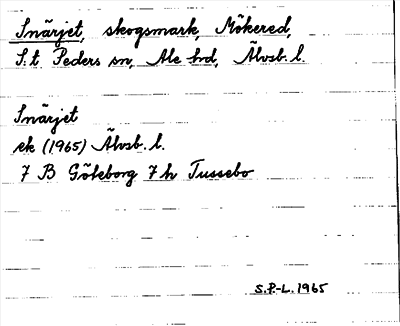 Snärjet, skogsmark, Mökered,
S:t Peders sn, Ale hd, Älvsb. l.
Snärjet
ek (1965) Älvsb. l.
7 B Göteborg 7 h Tussebo
S.P.-L. 1965